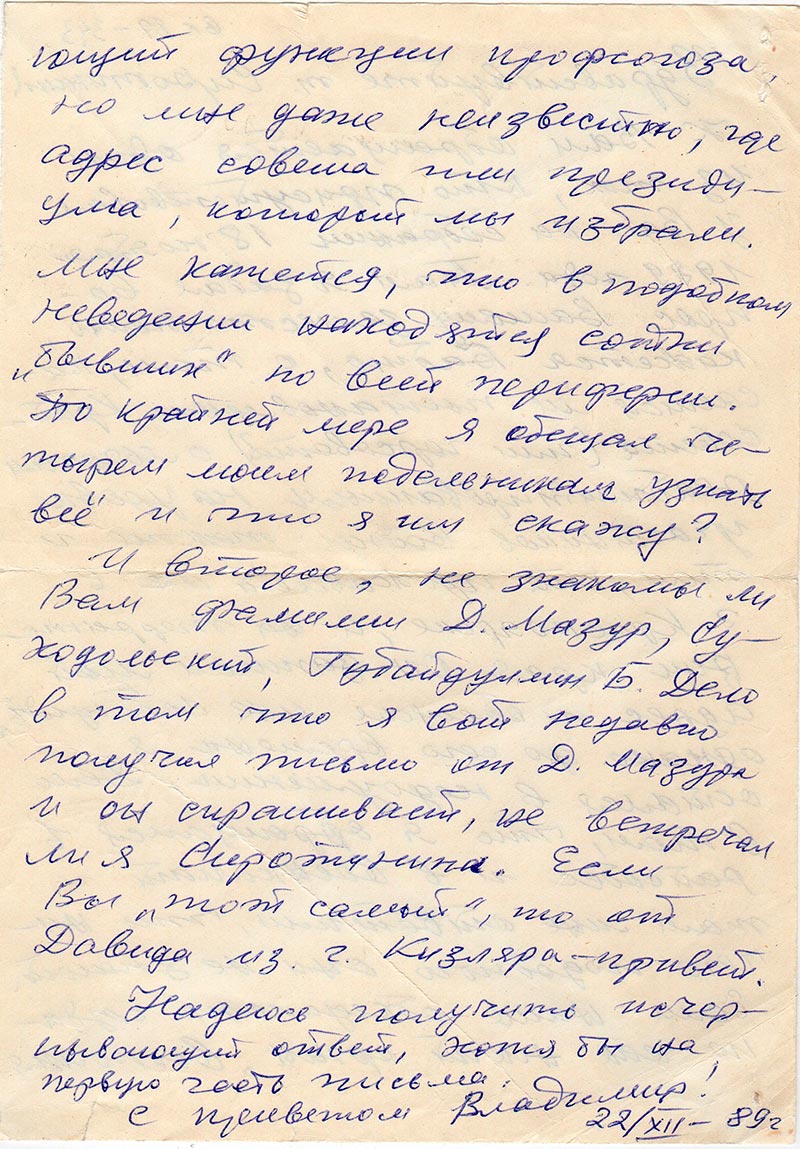 ющий функции профсоюза,
но мне даже неизвестно, где
адрес совета или президи-
ума, который мы избрали.
Мне кажется, что в подобном
неведении находятся сотни
„бывших" по всей периферии.
По крайней мере я обещал че-
тырем моим подельникам узнать
всё и что я им скажу?
И второе, не знакомы ли
Вам фамилии Д. Мазур, Су-
ходольский, Губайдуллин Б. Дело
в том что я вот недавно
получил письмо от Д. Мазура
и он спрашивает, не встречал
ли я Сиротинина. Если
Вы „тот самый", то от
Давида из г. Кизляра – привет.
Надеюсь получить исчер-
пывающий ответ, хотя бы на
первую часть письма.
С приветом Владимир!
22/XII – 89 г